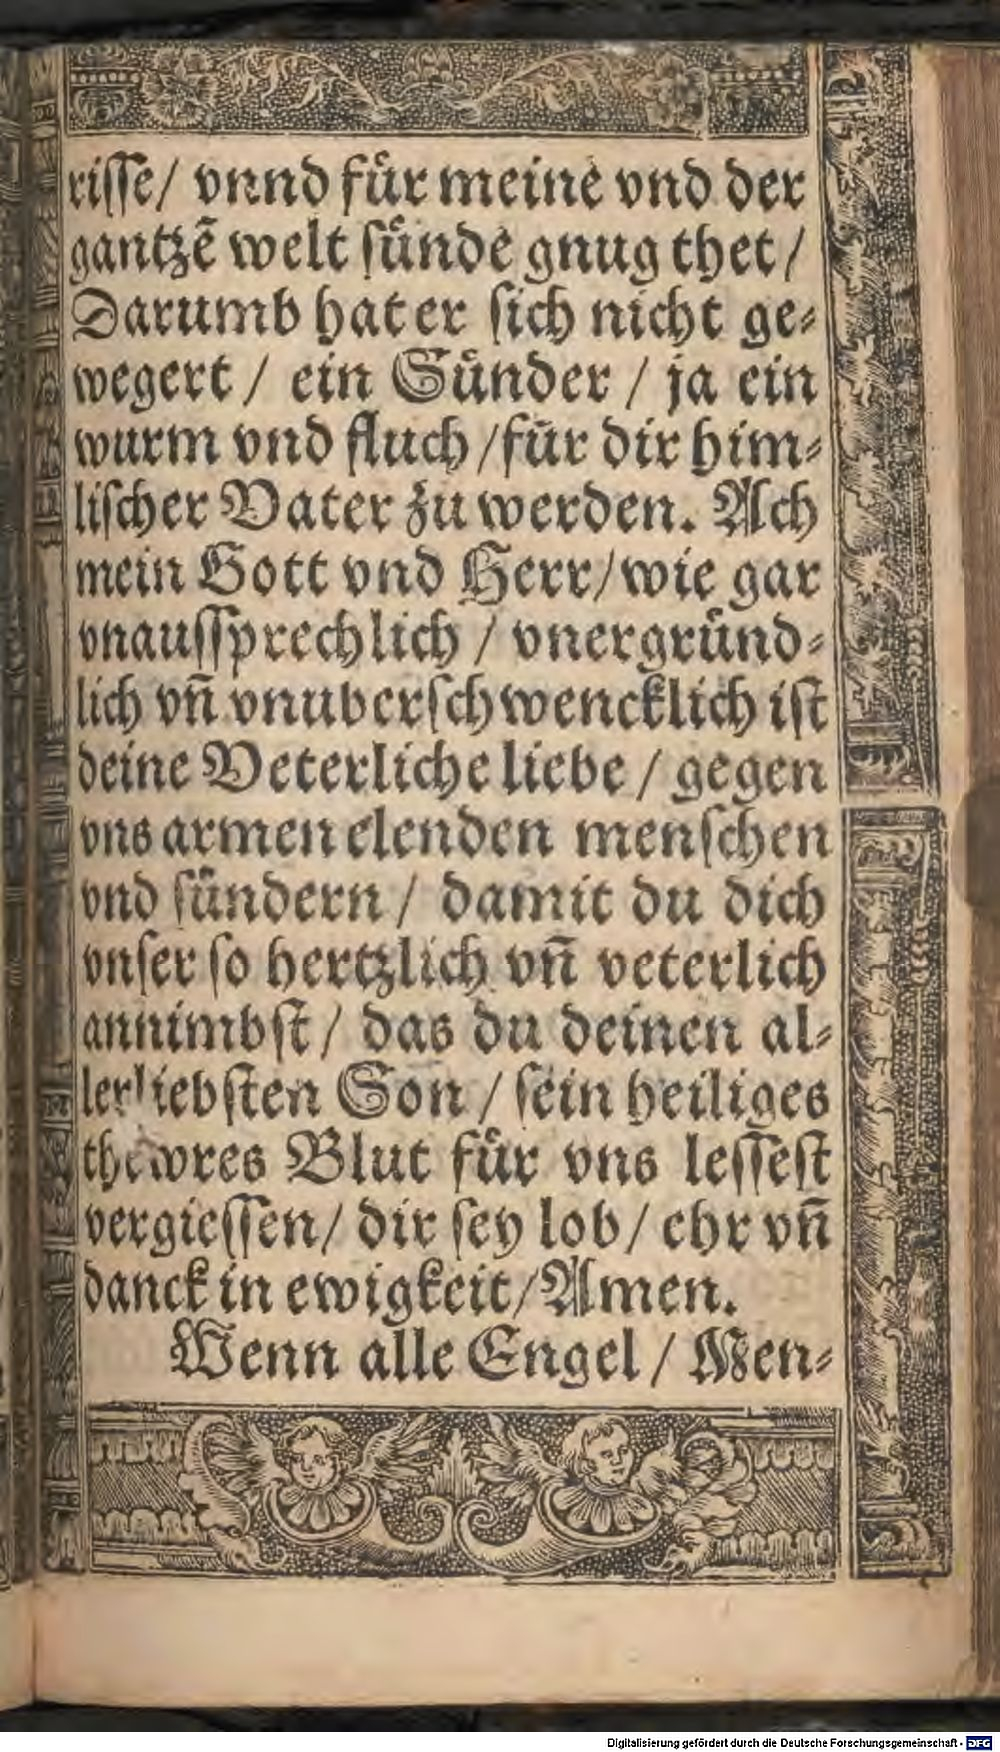 risse/ vnnd fuͤr meine vnd der
gantzẽ welt suͤnde gnug thet/
Darumb hat er sich nicht ge⸗
wegert / ein Suͤnder / ja ein
wurm vnd fluch /fuͤr dir him⸗
lischer Vater zu werden. Ach
mein Gott vnd Herr/wie gar
vnaussprechlich / vnergruͤnd⸗
lich vñ vnuberschwencklich ist
deine Veterliche liebe / gegen
vns armen elenden menschen
vnd suͤndern / damit du dich
vnser so hertzlich vñ veterlich
annimbst / das du deinen al⸗
lerliebsten Son / sein heiliges
thewres Blut fuͤr vns lessest
vergiessen/ dir sey lob/ ehr vñ
danck in ewigkeit/Amen.
Wenn alle Engel / Men⸗
Digitalisierung gefördert durch die Deutsche Forschungsgemeinschaft - DFG